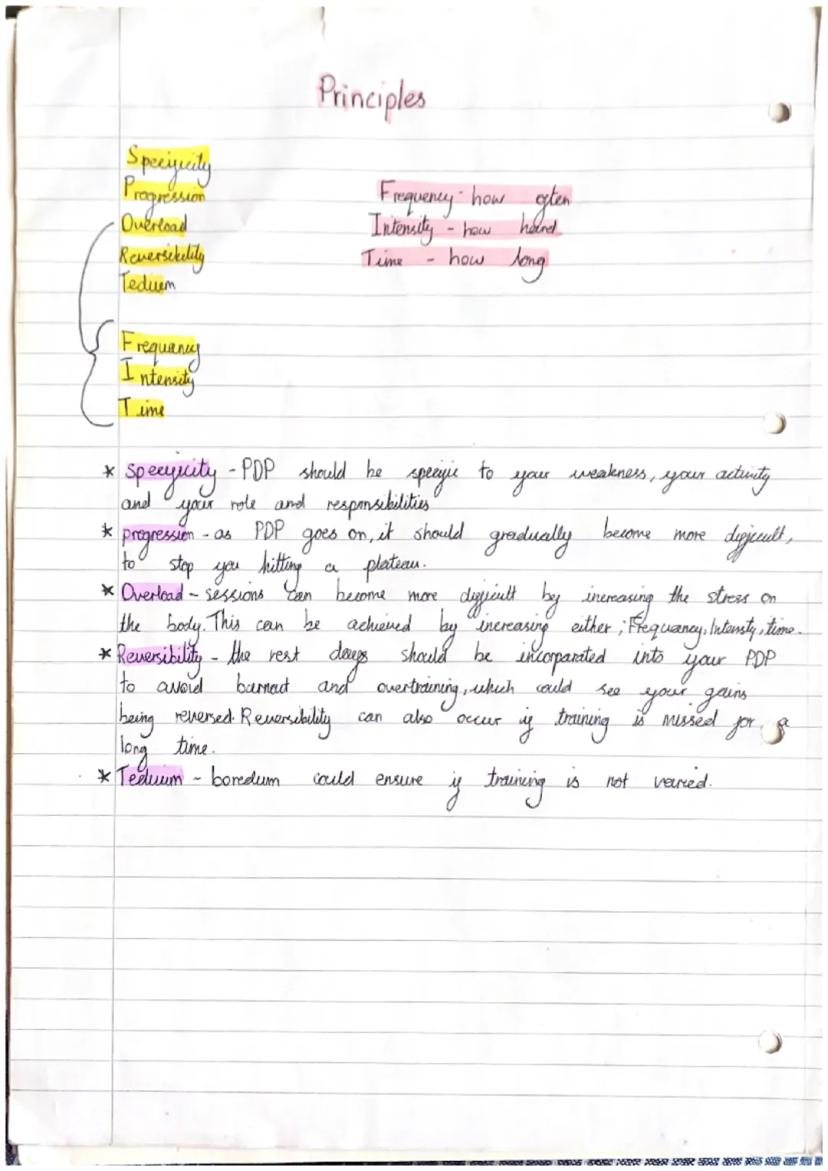 Principles
Specificity
Progression
Overload
Reversibility
Tedium
Frequency - how often
Intensity - how hard
Time - how long
Frequency
Intensity
Time
* Specificity - PDP should be specific to your weakness, your activity
and your role and responsibilities
* progression - as PDP goes on, it should gradually become more difficult,
to stop you hitting a plateau.
* Overload - sessions can become more difficult by increasing the stress on
the body. This can be achieved by increasing either; Frequency, Intensty, time.
* Reversibility - the rest days should be incorparated into your PDP
to avoid burnout and overtraining, which could see your gains
being reversed. Reversibility can also occur if training is missed for a
long time.
* Tedium - boredum could ensure if training is not varied.